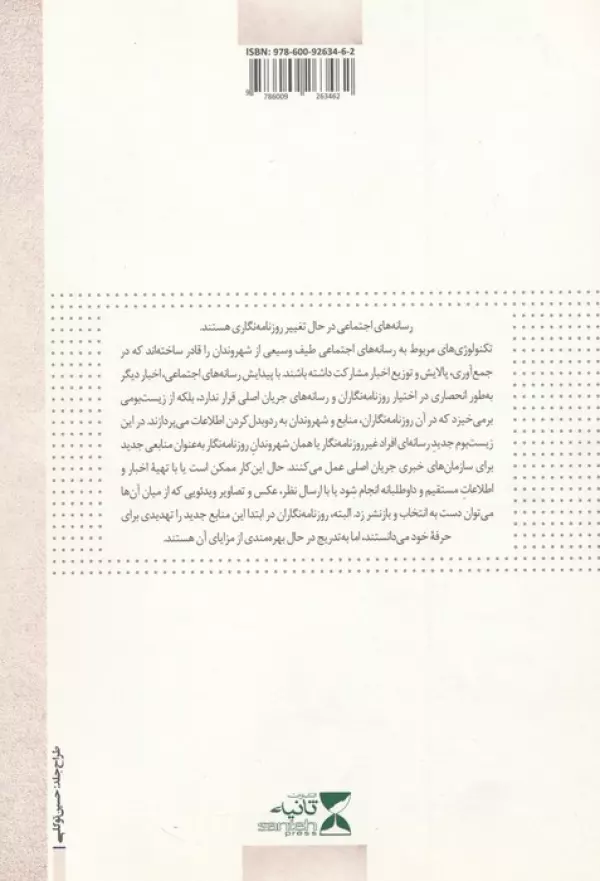 ISBN: 978-600-92634-6-2
9 786009 263462
رسانه‌های اجتماعی در حال تغییر روزنامه‌نگاری هستند.
تکنولوژی‌های مربوط به رسانه‌های اجتماعی طیف وسیعی از شهروندان را قادر ساخته‌اند که در
جمع‌آوری، پالایش و توزیع اخبار مشارکت داشته باشند. با پیدایش رسانه‌های اجتماعی، اخبار دیگر
به‌طور انحصاری در اختیار روزنامه‌نگاران و رسانه‌های جریان اصلی قرار ندارد، بلکه از زیست‌بومی
برمی‌خیزد که در آن روزنامه‌نگاران، منابع و شهروندان به ردوبدل‌کردن اطلاعات می‌پردازند. در این
زیست‌بوم جدیدِ رسانه‌ای افراد غیرروزنامه‌نگار یا همان شهروندانِ روزنامه‌نگار به‌عنوان منابعی جدید
برای سازمان‌های خبری جریان اصلی عمل می‌کنند. حال این‌کار ممکن است یا با تهیهٔ اخبار و
اطلاعاتِ مستقیم و داوطلبانه انجام شود یا با ارسال نظر، عکس و تصاویر ویدئویی که از میان آن‌ها
می‌توان دست به انتخاب و بازنشر زد. البته، روزنامه‌نگاران در ابتدا این منابع جدید را تهدیدی برای
حرفهٔ خود می‌دانستند، اما به‌تدریج در حال بهره‌مندی از مزایای آن هستند.
طراح جلد: حسین توکلی
انتشارات
ثانیه
sanieh
press